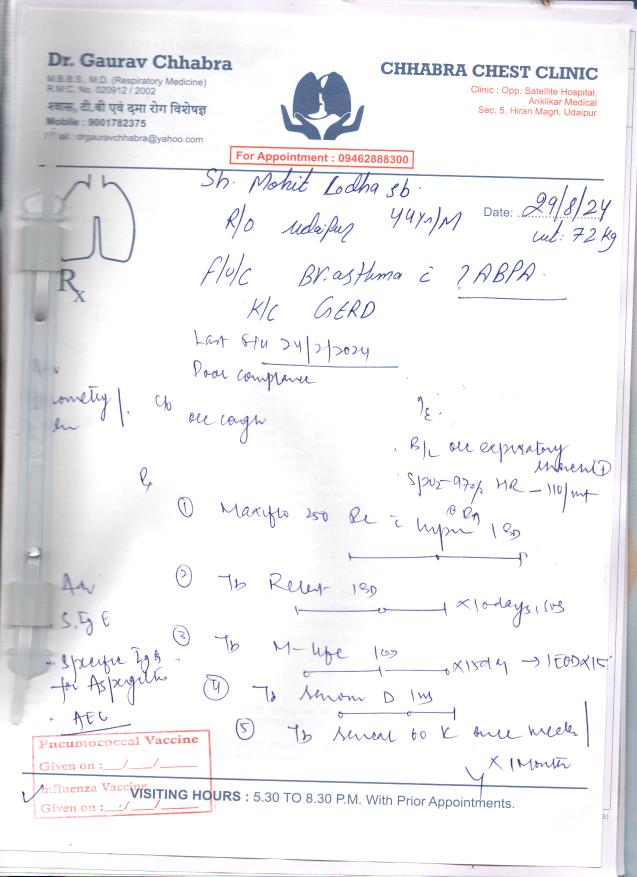 Dr. Gaurav Chhabra
M.B.B.S., M.D. (Respiratory Medicine)
R.M.C. No. 020912 / 2002
श्वास, टी.बी एवं दमा रोग विशेषज्ञ
Mobile : 9001782375
Email : drgauravchhabra@yahoo.com
CHHABRA CHEST CLINIC
Clinic : Opp. Satellite Hospital,
Anklikar Medical
Sec. 5, Hiran Magri, Udaipur
For Appointment : 09462888300
Sh. Mohit Lodha sb.
R/o Udaipur 44yr/M
Date: 29/8/24
wt: 72 kg
F/U/C Br. asthma c ? ABPA
K/C GERD
Rx
Last F/U 24/2/2024
Poor compliance
c/o occ cough
B/L occ expiratory
SpO2-97% HR - 110/mt
@ RA
Rx
① Maxiflo 250 Rc c 1 BD
② Tb 1 BD x 10 days,
③ Tb 1 OD x 15 day → 1 EOD x 15
④ Tb D
⑤ Tb 60 K once week
x 1 Month
Adv
S. Ig E
- Specific IgG
for Aspergillus
• AEC
Pneumococcal Vaccine
Given on :__/__/____
✓ Influenza Vaccine
Given on :__/__/____
VISITING HOURS : 5.30 TO 8.30 P.M. With Prior Appointments.